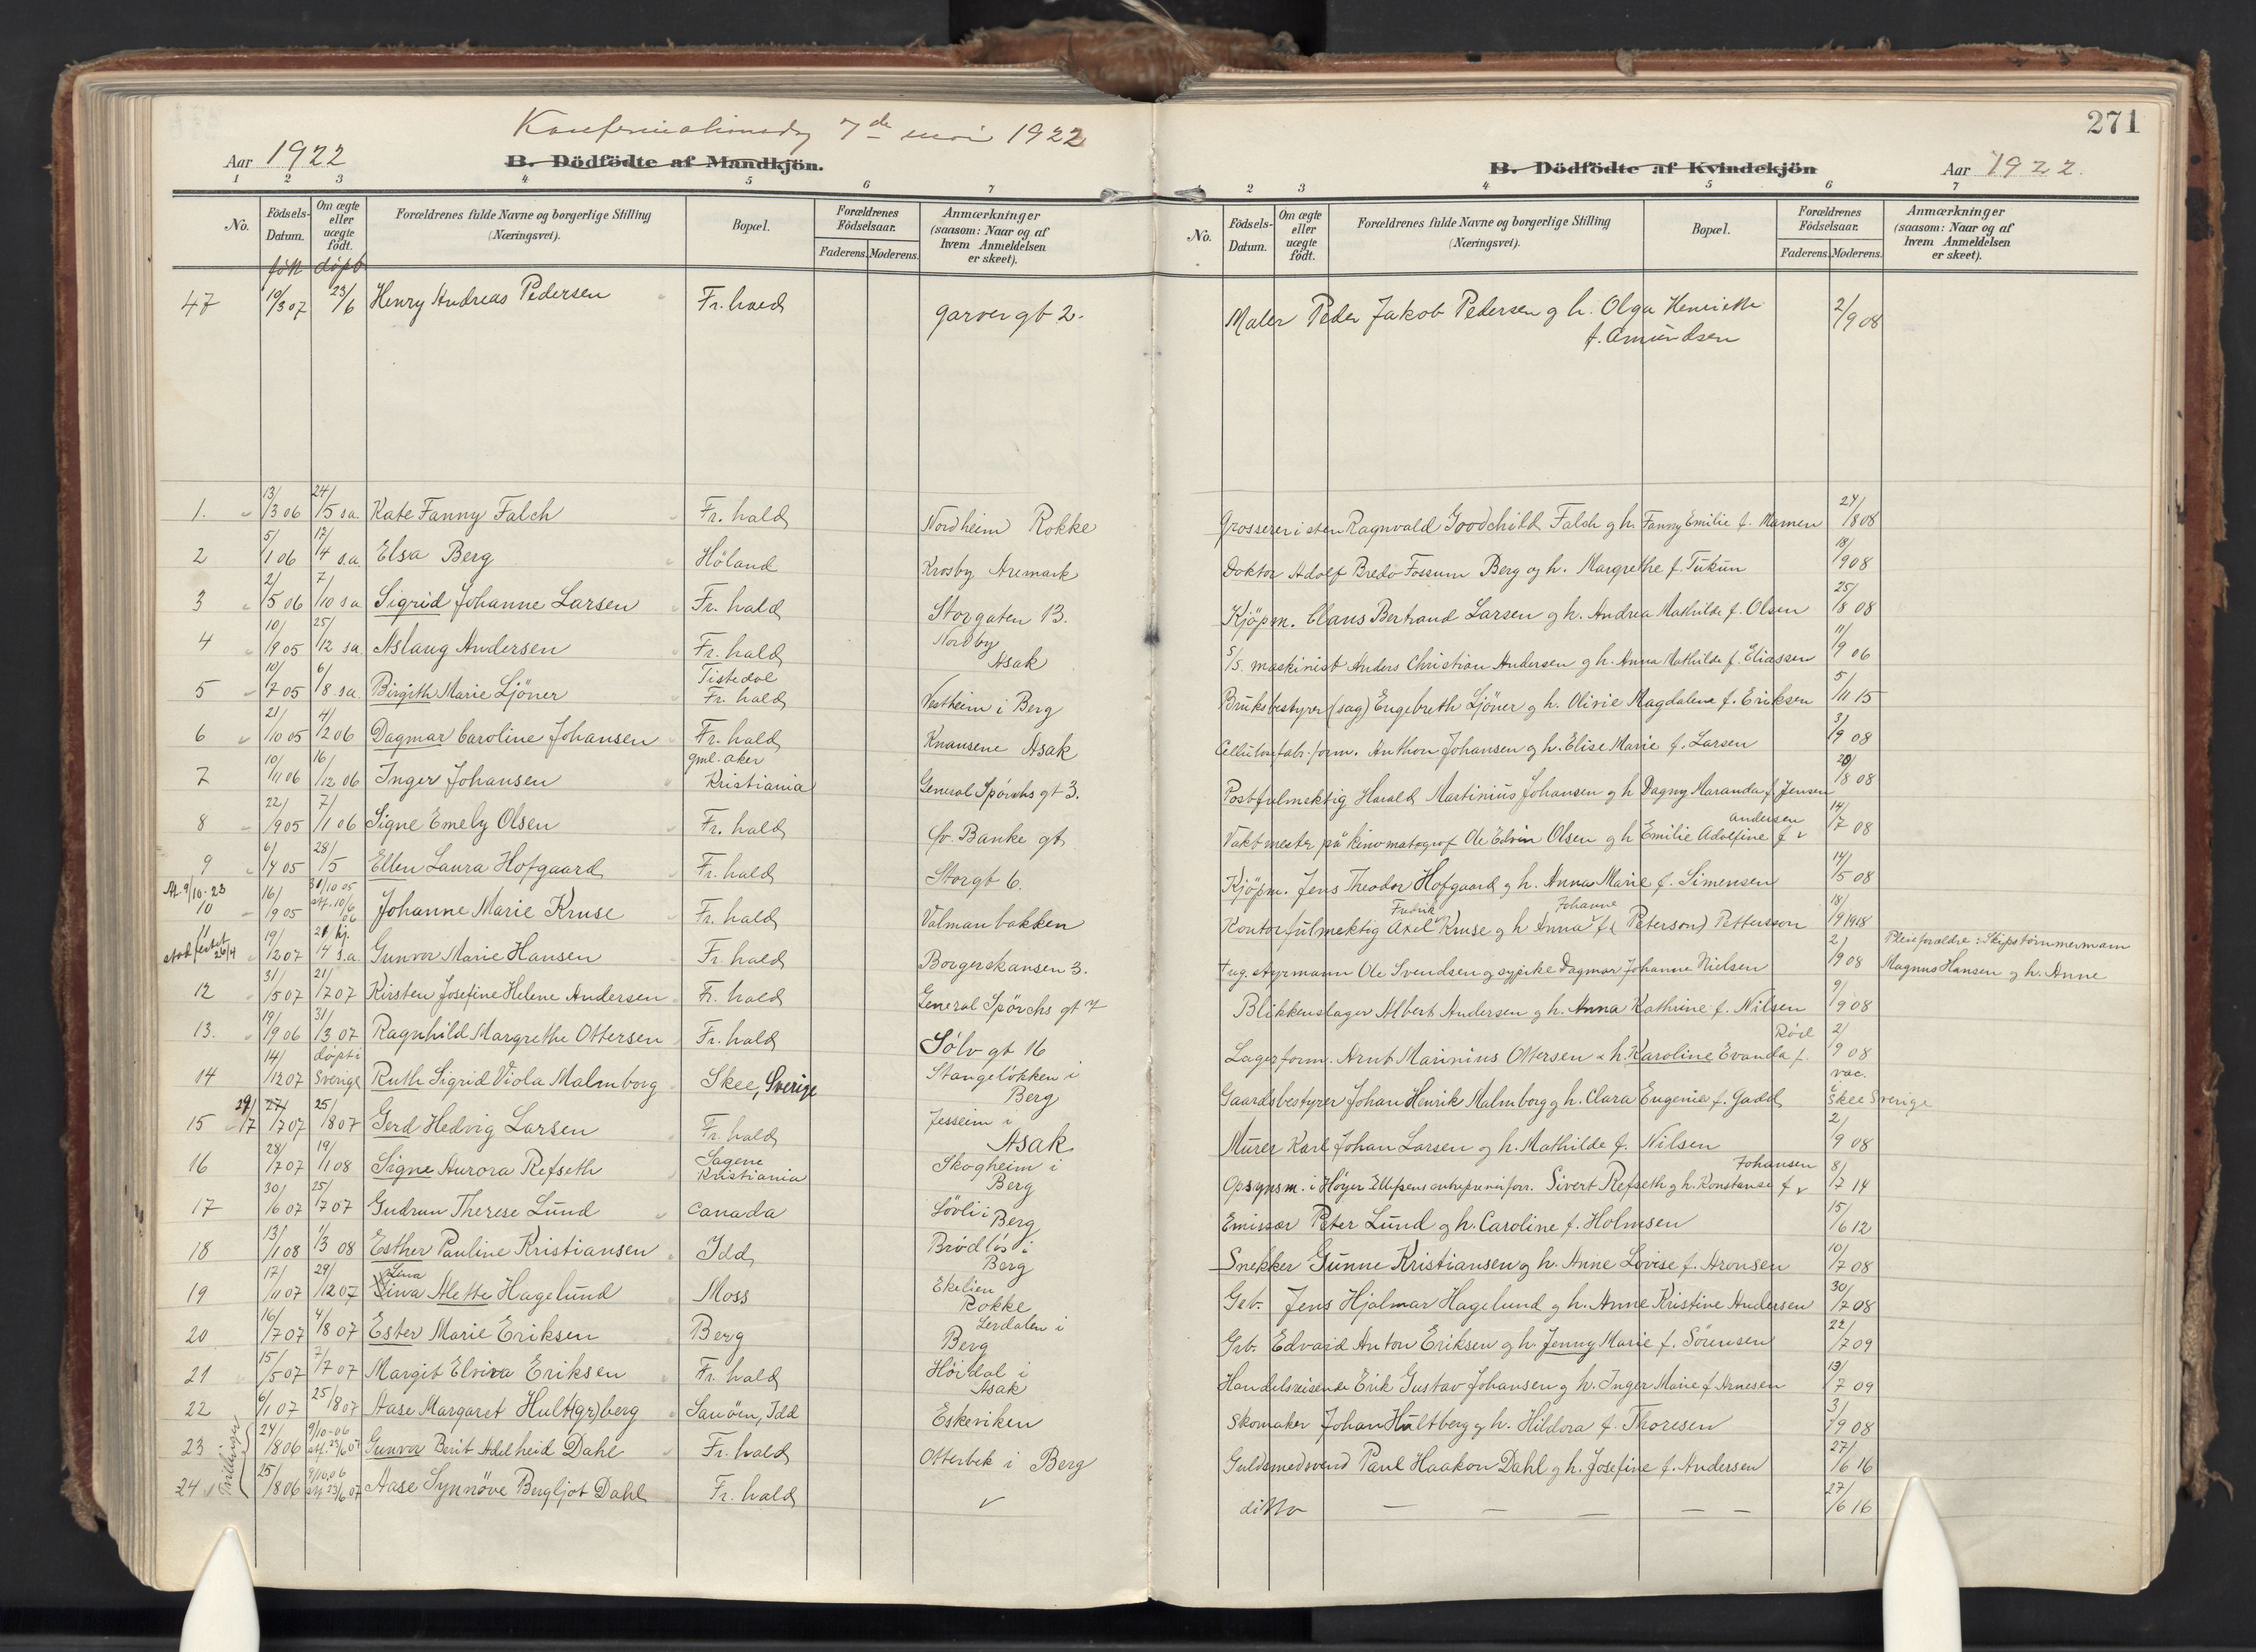 Konfirmationsdag 7de mai 1922
Aar 1922
B. Dödfödte af Mandkjön.
1 2 3 4 5 6 7
No.
Födsels-Datum.
Om ægte eller uægte födt.
Forældrenes fulde Navne og borgerlige Stilling (Næringsvei).
Bopæl.
Forældrenes Födselsaar.
Faderens. Moderens.
Anmærkninger (saasom: Naar og af hvem Anmeldelsen er skeet).
født døpt
271
B. Dödfödte af Kvindekjön
Aar 1922.
1 2 3 4 5 6 7
No.
Födsels-Datum.
Om ægte eller uægte födt.
Forældrenes fulde Navne og borgerlige Stilling (Næringsvei).
Bopæl.
Forældrenes Födselsaar.
Faderens. Moderens.
Anmærkninger (saasom: Naar og af hvem Anmeldelsen er skeet).
47 19/3 07 23/6 Henry Andreas Pedersen Fr. hald garver gt 2. Maler Peder Jakob Pedersen g h. Olga Henriette f. Amundsen 2/9 08
1. 13/3 06 24/5 s.a. Kate Fanny Falch Fr. hald Nordheim Rokke Grosserer i sten Ragnvald Goodchild Falch g h. Fanny Emilie f. Mamen 24/8 08
2 5/1 06 17/4 s.a. Elsa Berg Höland Krosby Aremark Doktor Adolf Bredo Fossum Berg og h. Margrethe f. Tukun 18/9 08
3 2/5 06 7/10 s a Sigrid Johanne Larsen Fr. hald Storgaten 13. Kjöpm. Claus Bertrand Larsen g h. Andrea Mathilde f. Olsen 25/8 08
4 10/9 05 25/12 sa. Aslaug Andersen Fr. hald Nordby Asak S/S. maskinist Anders Christian Andersen g h. Anna Mathilde f. Eliassen 11/9 06
5 10/7 05 6/8 s.a. Birgith Marie Ljöner Tistedal Fr. hald Vestheim i Berg Bruksbestyrer (sag) Engebreth Ljöner g h. Olivie Magdalene f. Eriksen 5/11 15
6 21/10 05 4/2 06 Dagmar Caroline Johansen Fr. hald Knausene Asak Cellulosefabr. form. Anthon Johansen g h. Elise Marie f. Larsen 3/9 08
7 10/11 06 16/12 06 Inger Johansen gml. Aker Kristiania General Spørchs gt 3. Postfulmektig Harald Martinius Johansen g h Dagny Maranda f. Jensen 20/8 08
8 22/9 05 7/1 06 Signe Emely Olsen Fr. hald Ov. Banke gt. Vaktmester på kinomatograf Ole Edvin Olsen g h Emilie Adolfine f. Andersen 14/7 08
9 6/4 05 28/5 Ellen Laura Hofgaard Fr. hald Storgt 6. Kjöpm. Jens Theodor Hofgaard g h. Anna Marie f. Simensen 14/5 08
At 9/10-23
10 16/9 05 31/10 05 stf. 10/6 06 Johanne Marie Kruse Fr. hald Valmanbakken Kontorfulmektig Axel Fredrik Kruse g h Anna Johanne f. (Peterson) Pettersson 18/9 1908
11 19/12 07 21 hj. 14 s.a. Gunvor Marie Hansen Fr. hald Borgerskansen 3. Ug. styrmann Ole Svendsen og pike Dagmar Johanne Nielsen 2/9 08 Pleieforældre: Skipstømmermann Magnus Hansen g h. Anne
12 31/5 07 21/7 07 Kirsten Josefine Helene Andersen Fr. hald General Spørchs gt 7 Blikkenslager Albert Andersen g h. Anna Kathrine f. Nilsen 9/9 08
13. 19/9 06 31/3 07 Ragnhild Margrethe Ottersen Fr. hald Sølv gt 16 Lagerform. Arnt Marinius Ottersen & h. Karoline Evanda f. Röd 2/9 08
14 14/12 07 døpt i Sverige Ruth Sigrid Viola Malmborg Skee, Sverige Stangeløkken i Berg Gaardsbestyrer Johan Henrik Malmborg g h. Clara Eugenie f. Gadd vac. i Skee Sverige
15 29/7 27/7 07 25/8 07 Gerd Hedvig Larsen Fr. hald Jesseim i Asak Murer Karl Johan Larsen og h. Mathilde f. Nilsen 2/9 08
16 28/7 07 19/1 08 Signe Aurora Refseth Sagene Kristiania Skogheim i Berg Opsynsm. i Høyer Ellefsens entreprenørforr. Sivert Refseth g h. Konstanse f. Johansen 8/7 14
17 30/6 07 25/7 07 Gudrun Therese Lund Canada Løvli i Berg Emissær Peter Lund g h. Caroline f. Holmsen 15/6 12
18 13/1 08 1/3 08 Esther Pauline Kristiansen Idd Brödløs i Berg Snekker Gunne Kristiansen g h. Anne Lovise f. Aronsen 10/7 08
19 17/11 07 29/12 07 Lina Alette Hagelund Moss Ekelien Rokke Grb. Jens Hjalmar Hagelund g h. Anne Kristine Andersen 30/7 08
20 16/7 07 4/8 07 Ester Marie Eriksen Berg Lerdalen i Berg Grb. Edvard Anton Eriksen g h. Jenny Marie f. Sörensen 22/7 09
21 15/5 07 7/7 07 Margit Elvira Eriksen Fr. hald Höidal i Asak Handelsreisende Erik Gustav Johansen g h. Inger Marie f. Arnesen 13/7 09
22 6/1 07 25/8 07 Aase Margaret Hult(gr)berg Sauöen, Idd Eskeviken Skomaker Johan Hultberg g h. Hildora f. Thoresen 3/9 08
23 Tvillinger 24/8 06 9/10-06 stf. 23/6 07 Gunvor Berit Adelheid Dahl Fr. hald Otterbek i Berg Guldsmedsvend Paul Haakon Dahl g h. Josefine f. Andersen 27/6 16
24 25/8 06 9/10.06 stf 23/6 07 Aase Synnöve Bergljot Dahl Fr. hald ditto — — — — — 27/6 16